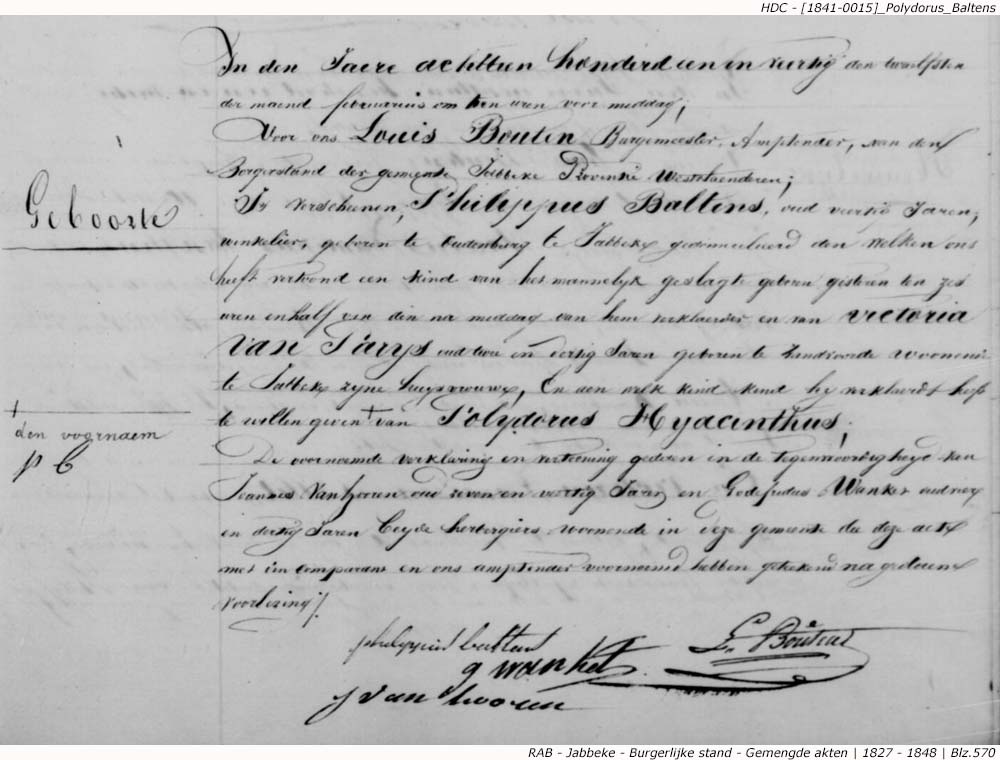 HDC - [1841-0015]_Polydorus_Baltens
In den Jaere achttien honderd een en veertig den twaelfsten
der maend februarius om tien uren voor middag;
Voor ons Louis Bouten Burgemeester, Amptender, van den
Borgerstand der gemeente Jabbeke Provintie Westvlaenderen;
Is verscheenen, Philippus Baltens, oud veertig Jaren,
winkelier, geboren te Oudenburg te Jabbeke gedomicilieerd den welken ons
heeft vertoond een kind van het mannelyk geslagte geboren gisteren ten zes
uren en half in den na middag van hem verklaerder en van Victoria
Van Parys oud twee en dertig Jaren geboren te Zandvoorde woonende
te Jabbeke zyne huysvrouwe, En aen welk kind hy verklaerdt heeft
te willen geven + van Polydorus Hyacinthus;
De voornoemde verklaring en vertooning gedaen in de tegenwoordigheyd van
Joannes Van hooren oud zeven en veertig Jaren en Godefridus Wanket oud
en dertig Jaren beyde herbergiers woonende in deze gemeente die deze acte
met den Comparant en ons amptender voornoemd hebben geteekend na gedaene
voorlezing /.
Geboorte
+
den voornaem
p B
philippus baltens
L. Bouten
g wanket
j van hooren
RAB - Jabbeke - Burgerlijke stand - Gemengde akten | 1827 - 1848 | Blz.570